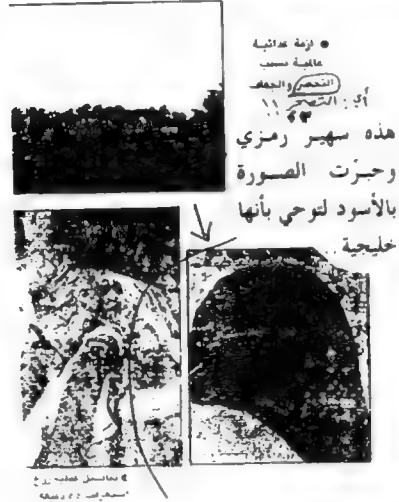 ● ازمة غذائية
عالمية بسبب
التحضر والجفاف
أي: التصحر !!
هذه سهير رمزي
وحبرت الصورة
بالأسود لتوحي بأنها
خليجية